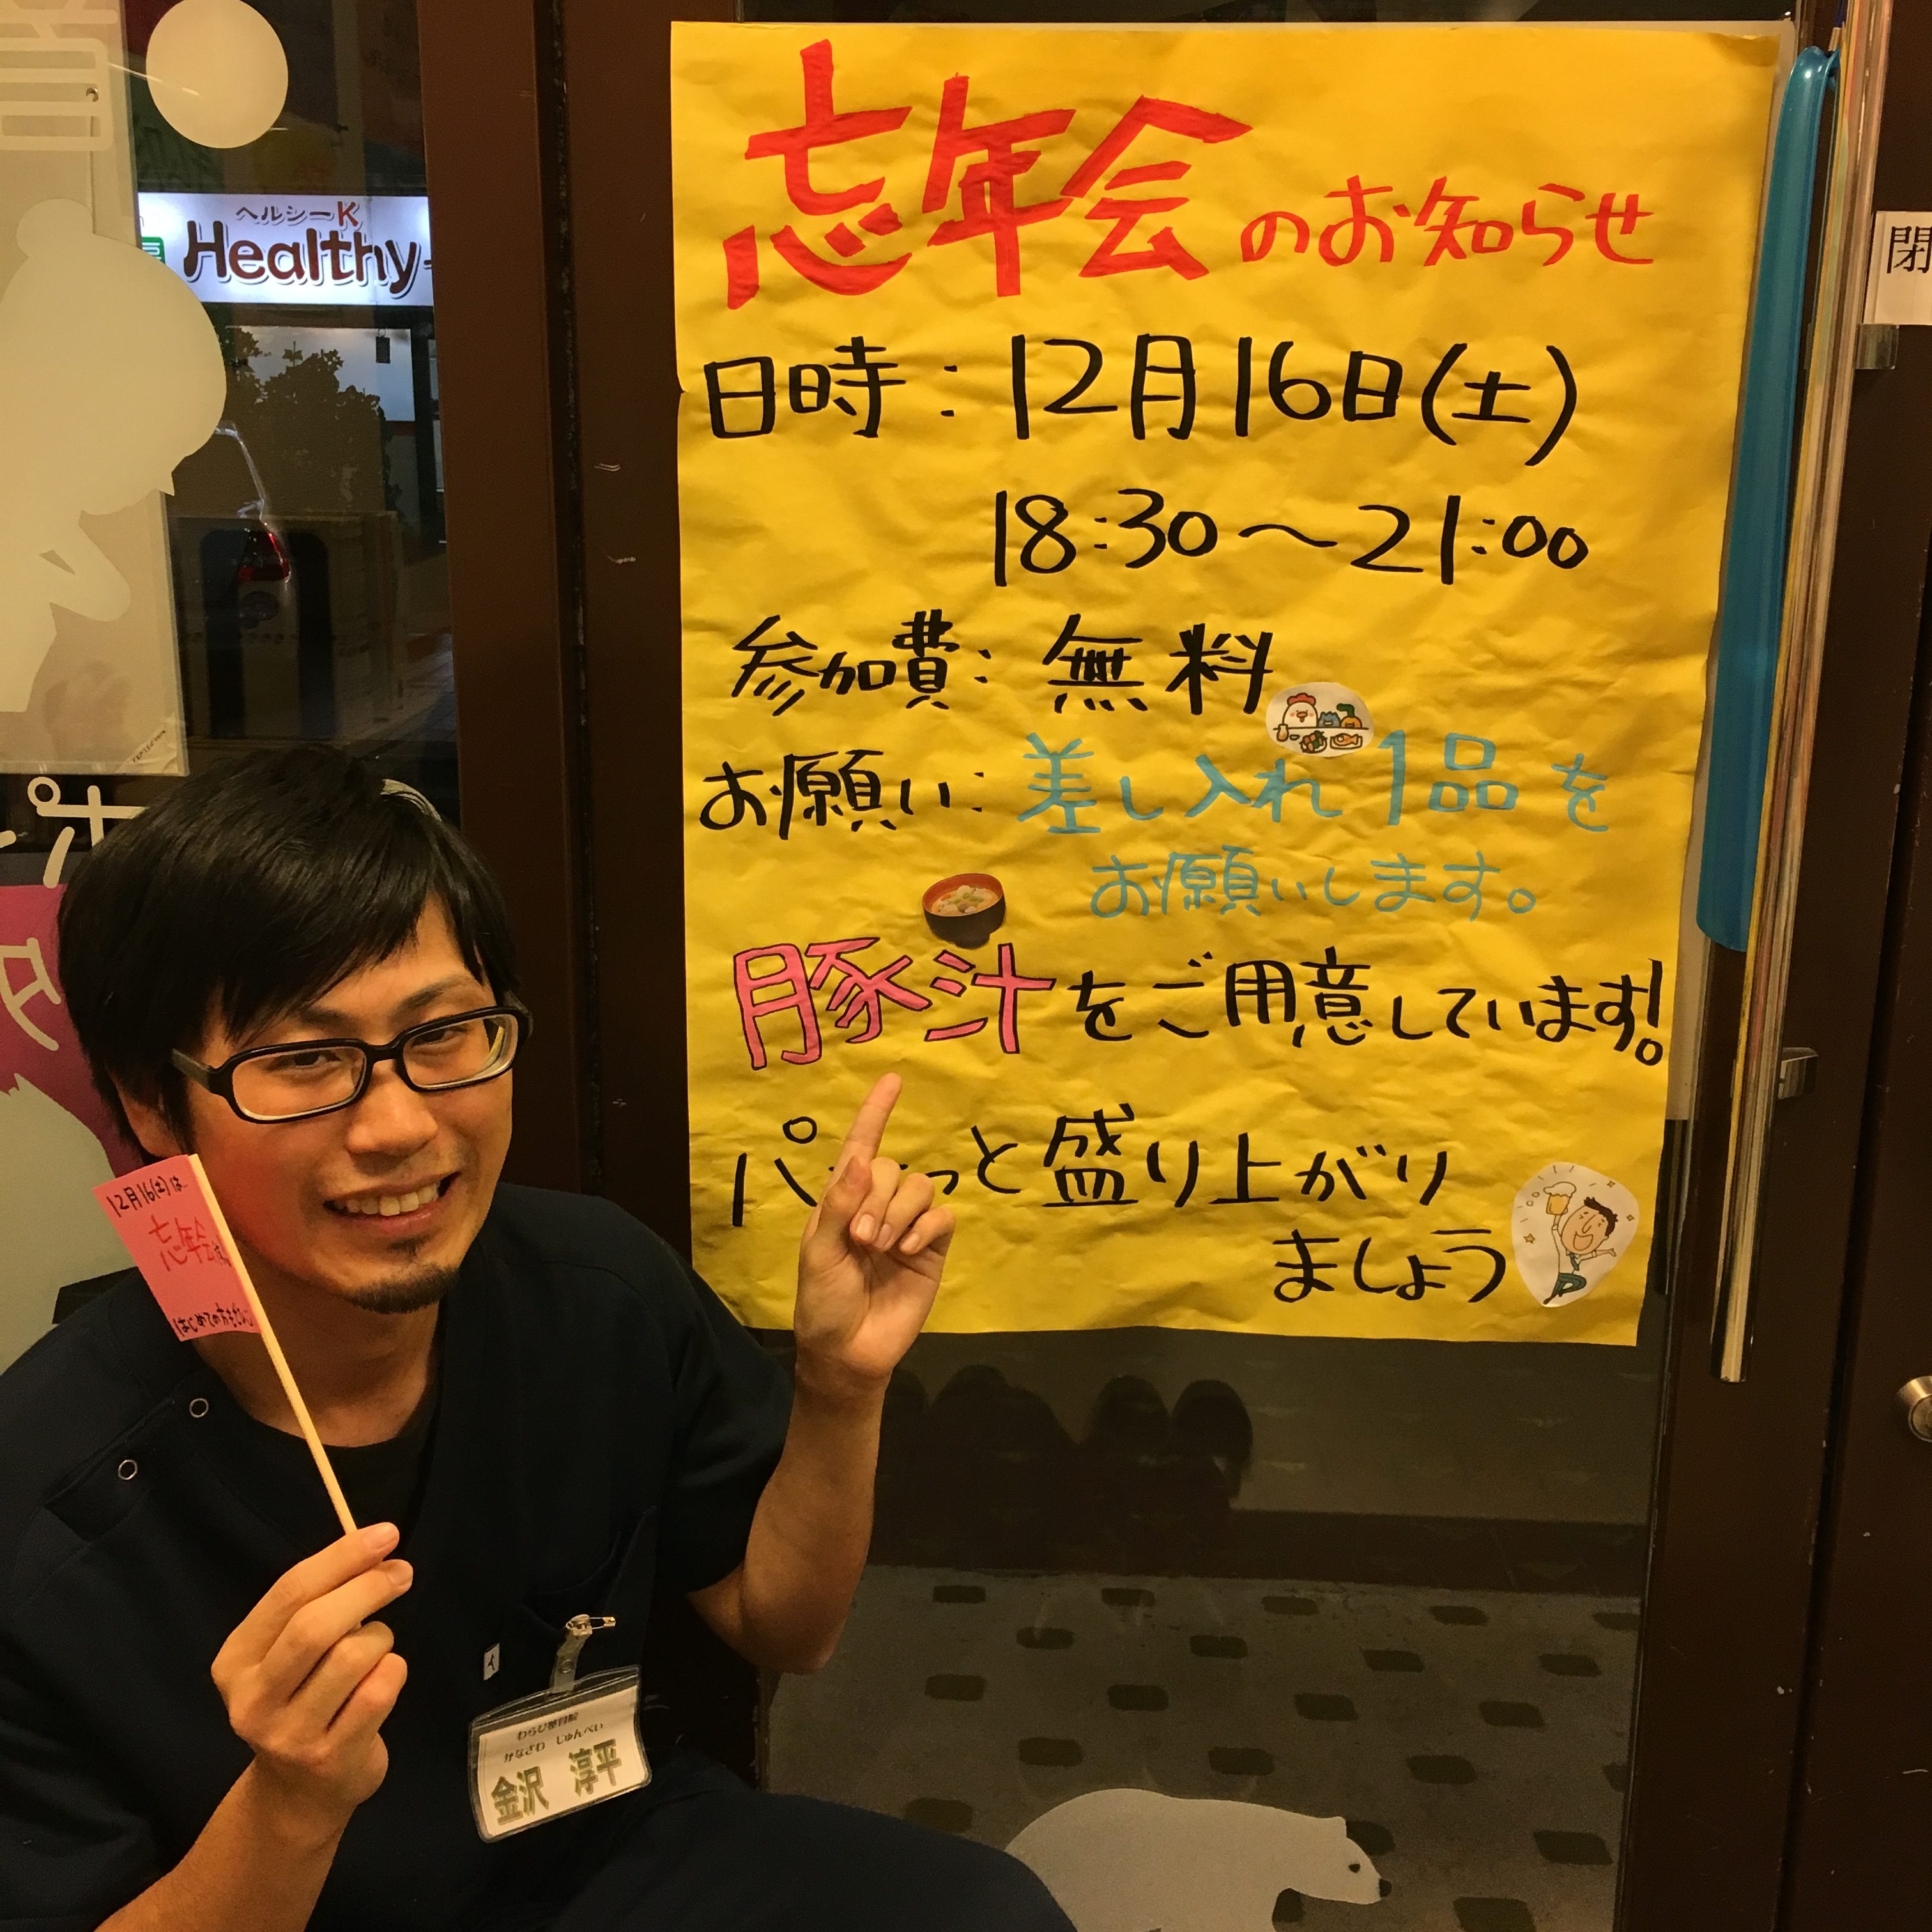 忘年会のお知らせ
日時：12月16日(土)
18:30〜21:00
参加費：無料
お願い：差し入れ1品を
お願いします。
豚汁をご用意しています!。
パーっと盛り上がり
ましょう
ヘルシーK
Healthy-
閉
12月16(土)は…
忘年会
はじめての方も
わらび整骨院
かなざわ じゅんぺい
金沢 淳平